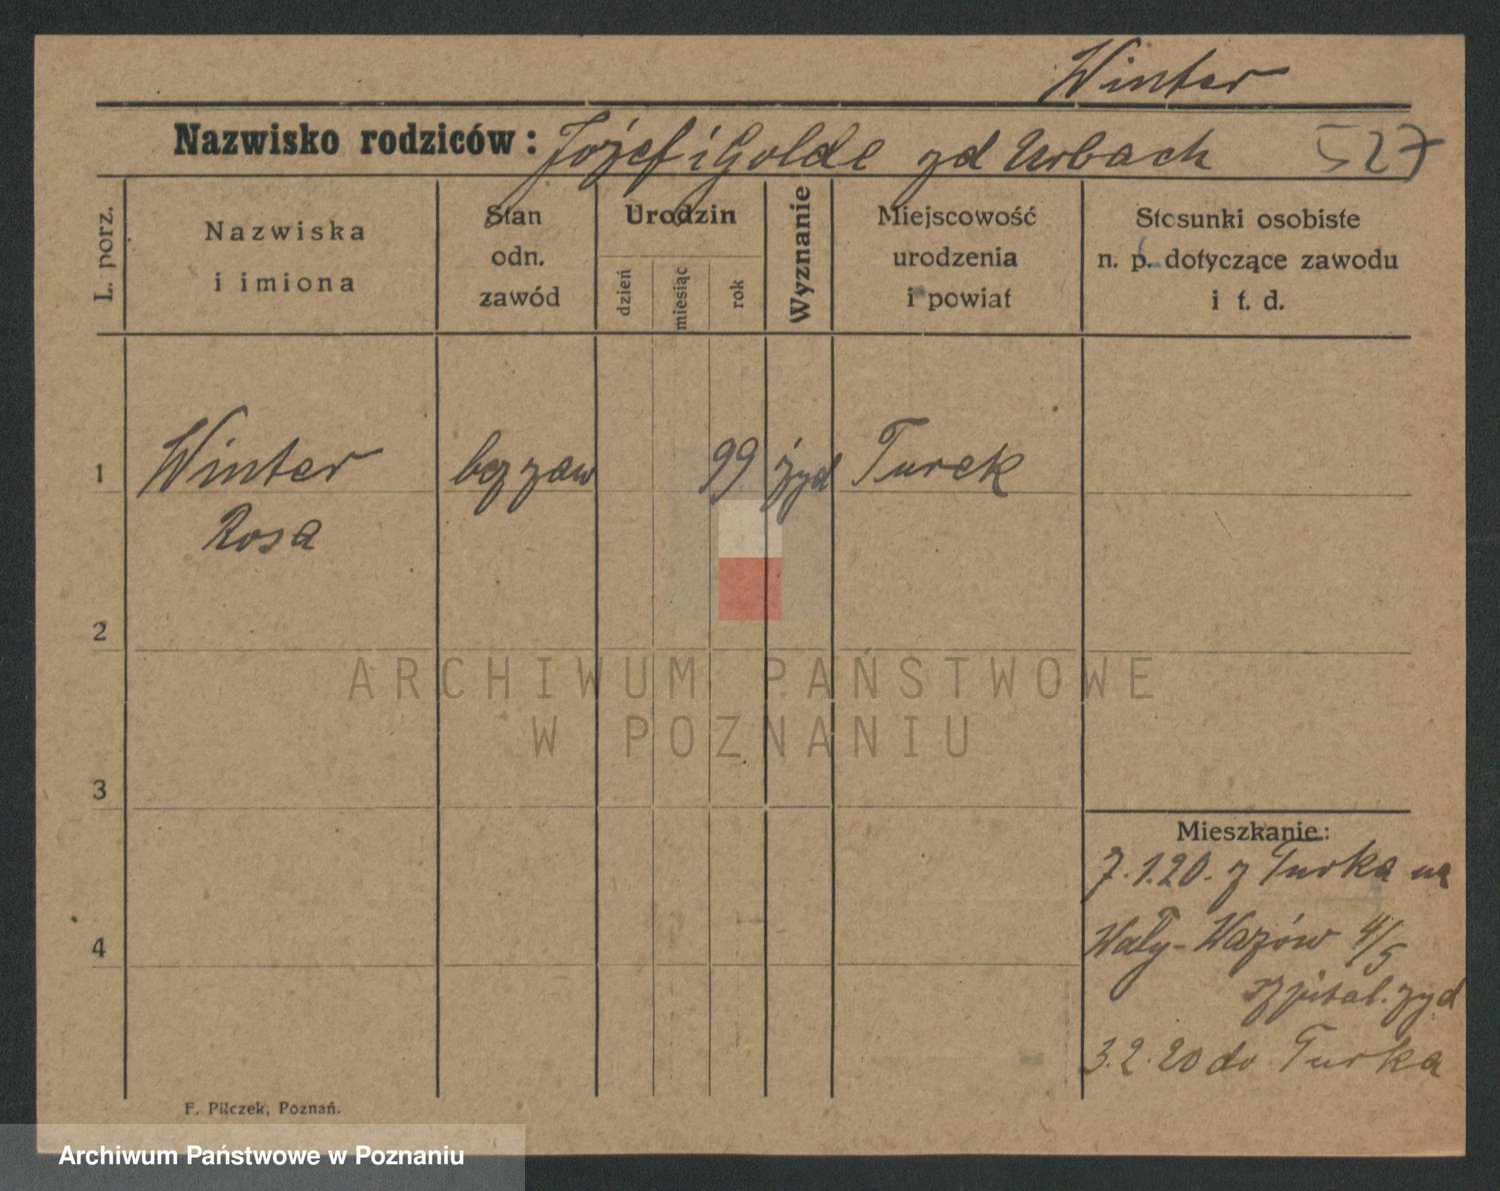 Winter
Nazwisko rodziców: Józef i Golde zd Urbach 527
L. porz.
Nazwiska
i imiona
Stan
odn.
zawód
Urodzin
dzień
miesiąc
rok
Wyznanie
Miejscowość
urodzenia
i powiat
Stosunki osobiste
n. p. dotyczące zawodu
i t. d.
1 Winter bez zaw 99 żyd Turek
Rosa
2
ARCHIWUM PAŃSTWOWE
W POZNANIU
3
Mieszkanie:
7.1.20. z Turka na
4 Wały-Wazów 4/5
szpital. żyd
3.2.20 do Turka
F. Pilczek, Poznań.
Archiwum Państwowe w Poznaniu